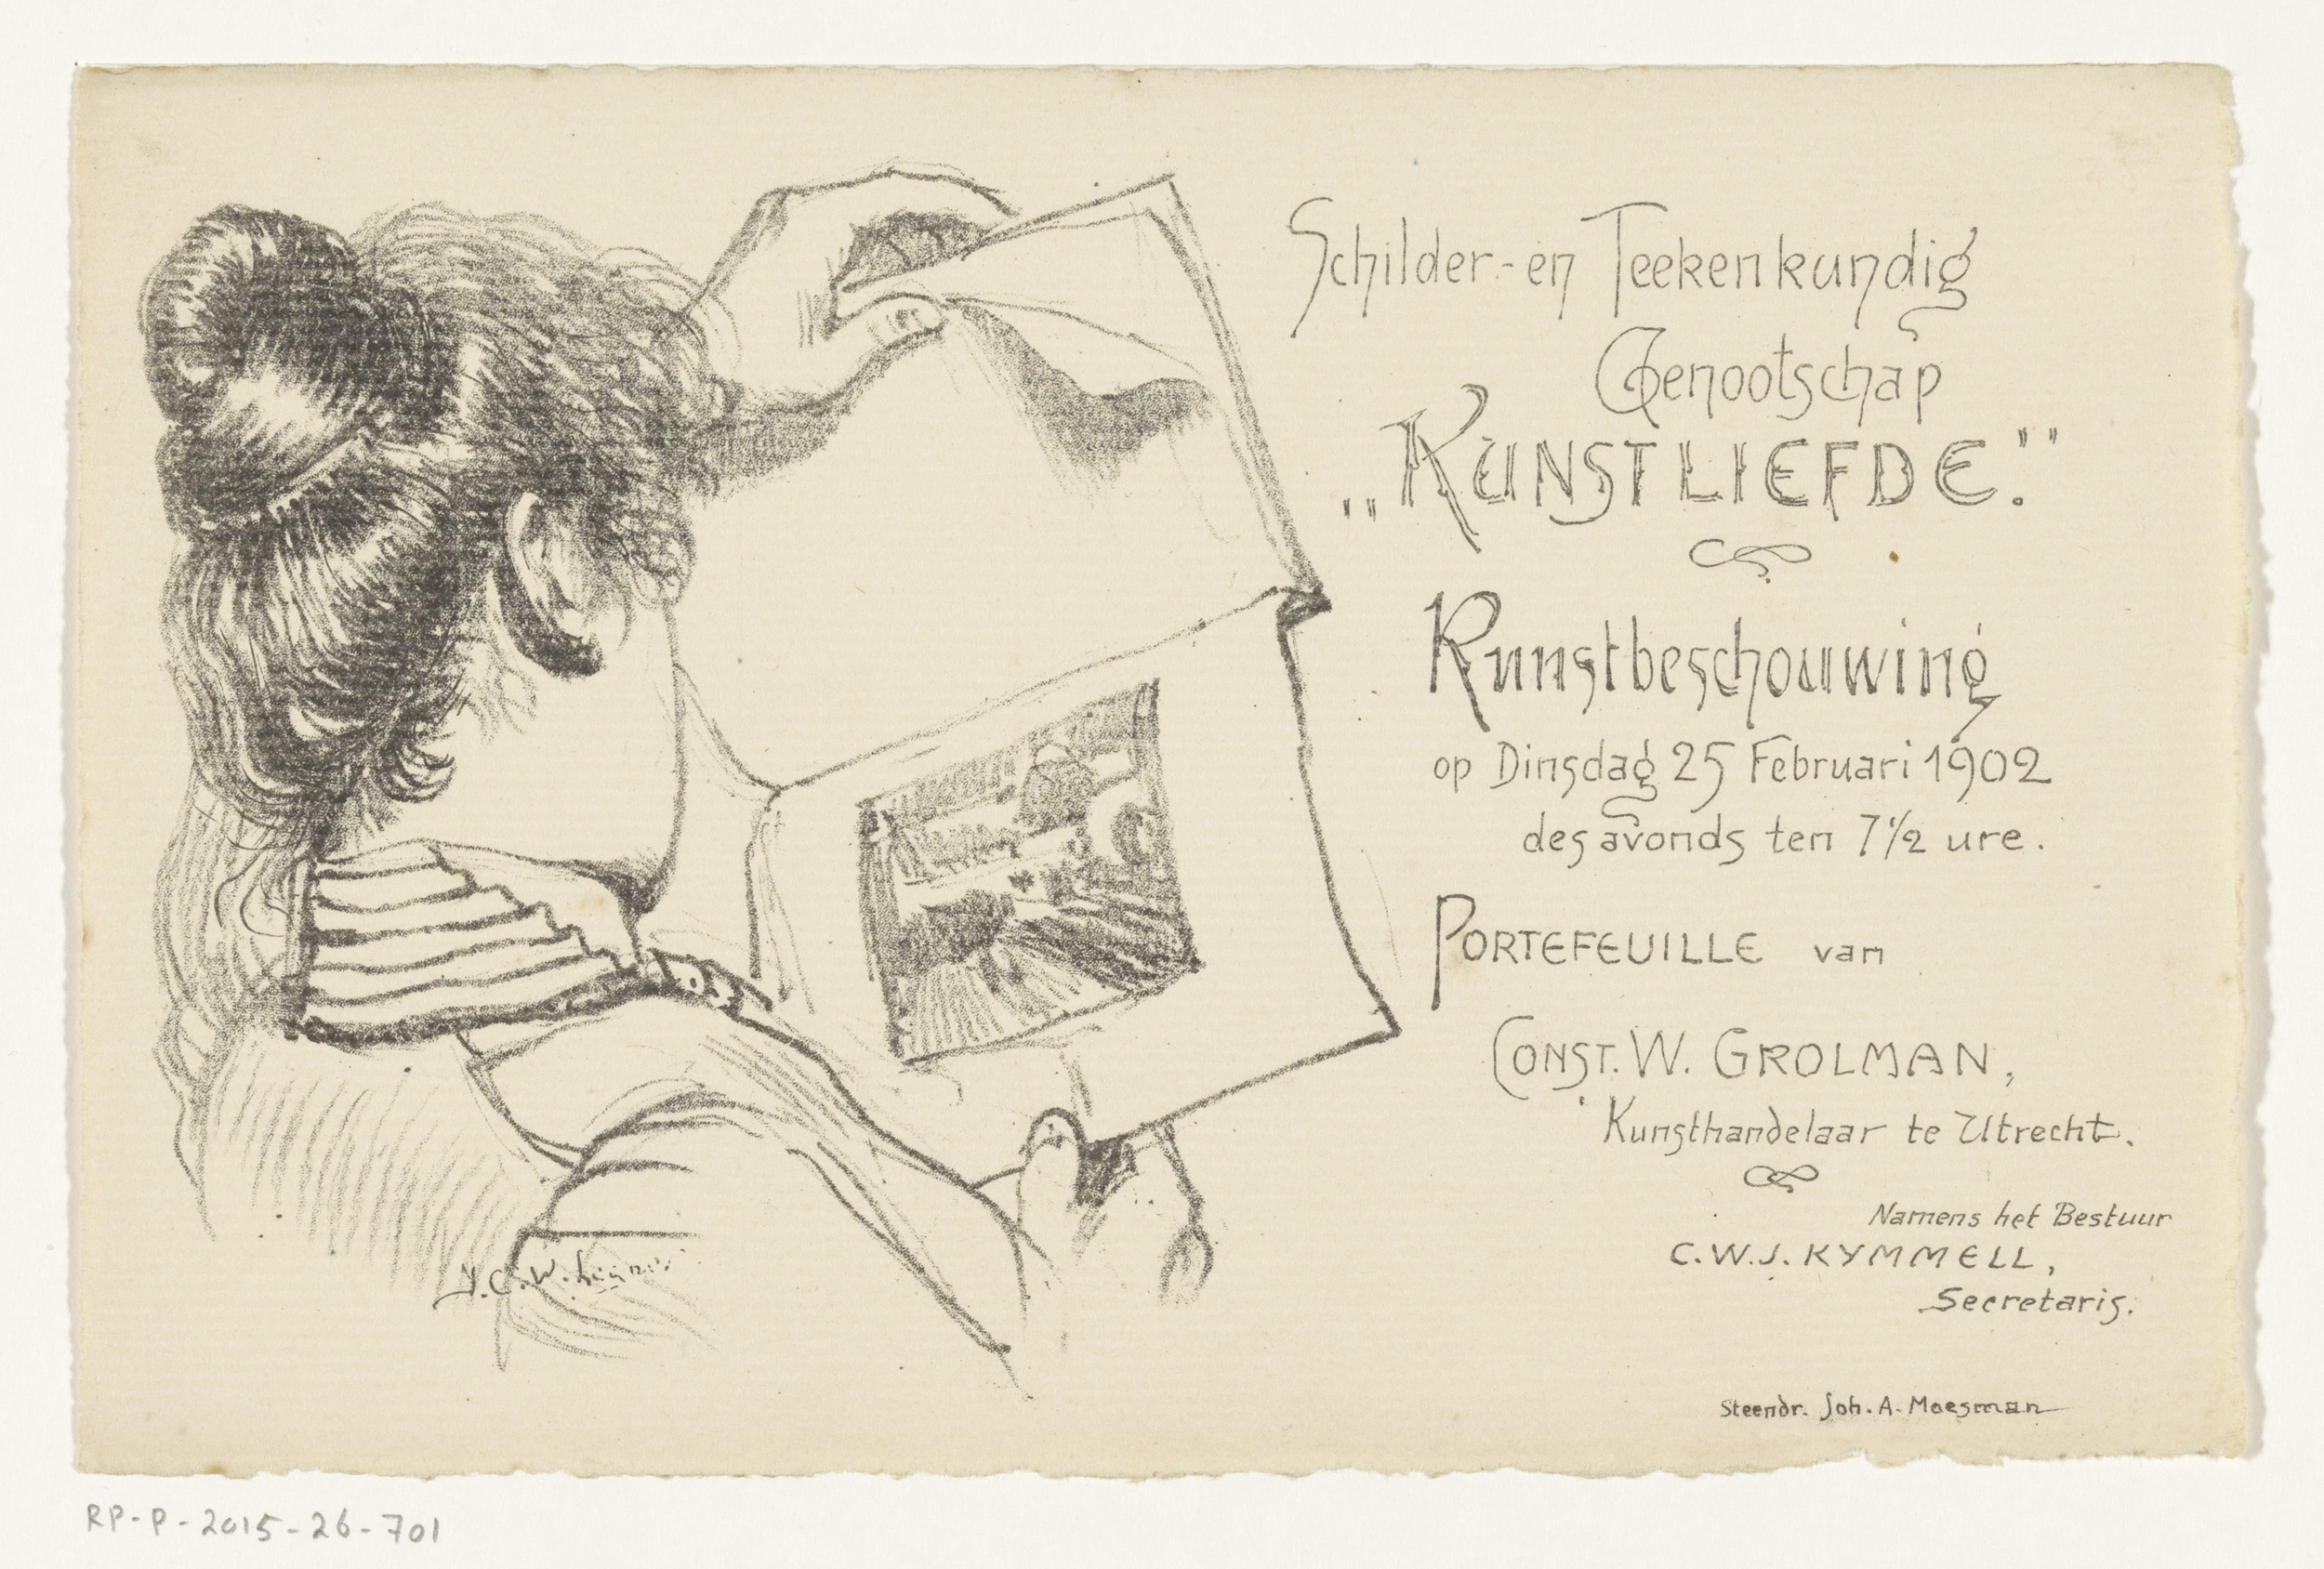 Schilder-en Teekenkundig
Genootschap
„KUNSTLIEFDE."
Kunstbeschouwing
op Dinsdag 25 Februari 1902
des avonds ten 7½ ure.
PORTEFEUILLE van
CONST. W. GROLMAN,
Kunsthandelaar te Utrecht.
Namens het Bestuur
C.W.J. KYMMELL,
Secretaris.
Steendr. Joh. A. Moesman
C. W.
RP-P-2015-26-701